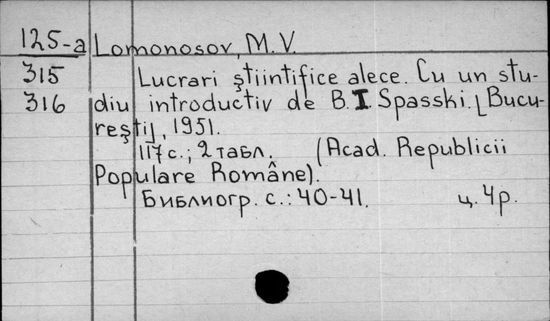 125-a Lomonosov, M. V.
315 Lucrari ştiintifice alece. Cu un stu-
316 diu introductiv de B. I. Spasski. [Bucu-
reşti], 1951.
117 с.; 2 табл. (Acad. Republicii
Populare Române).
Библиогр. с.: 40-41. ц. 4р.